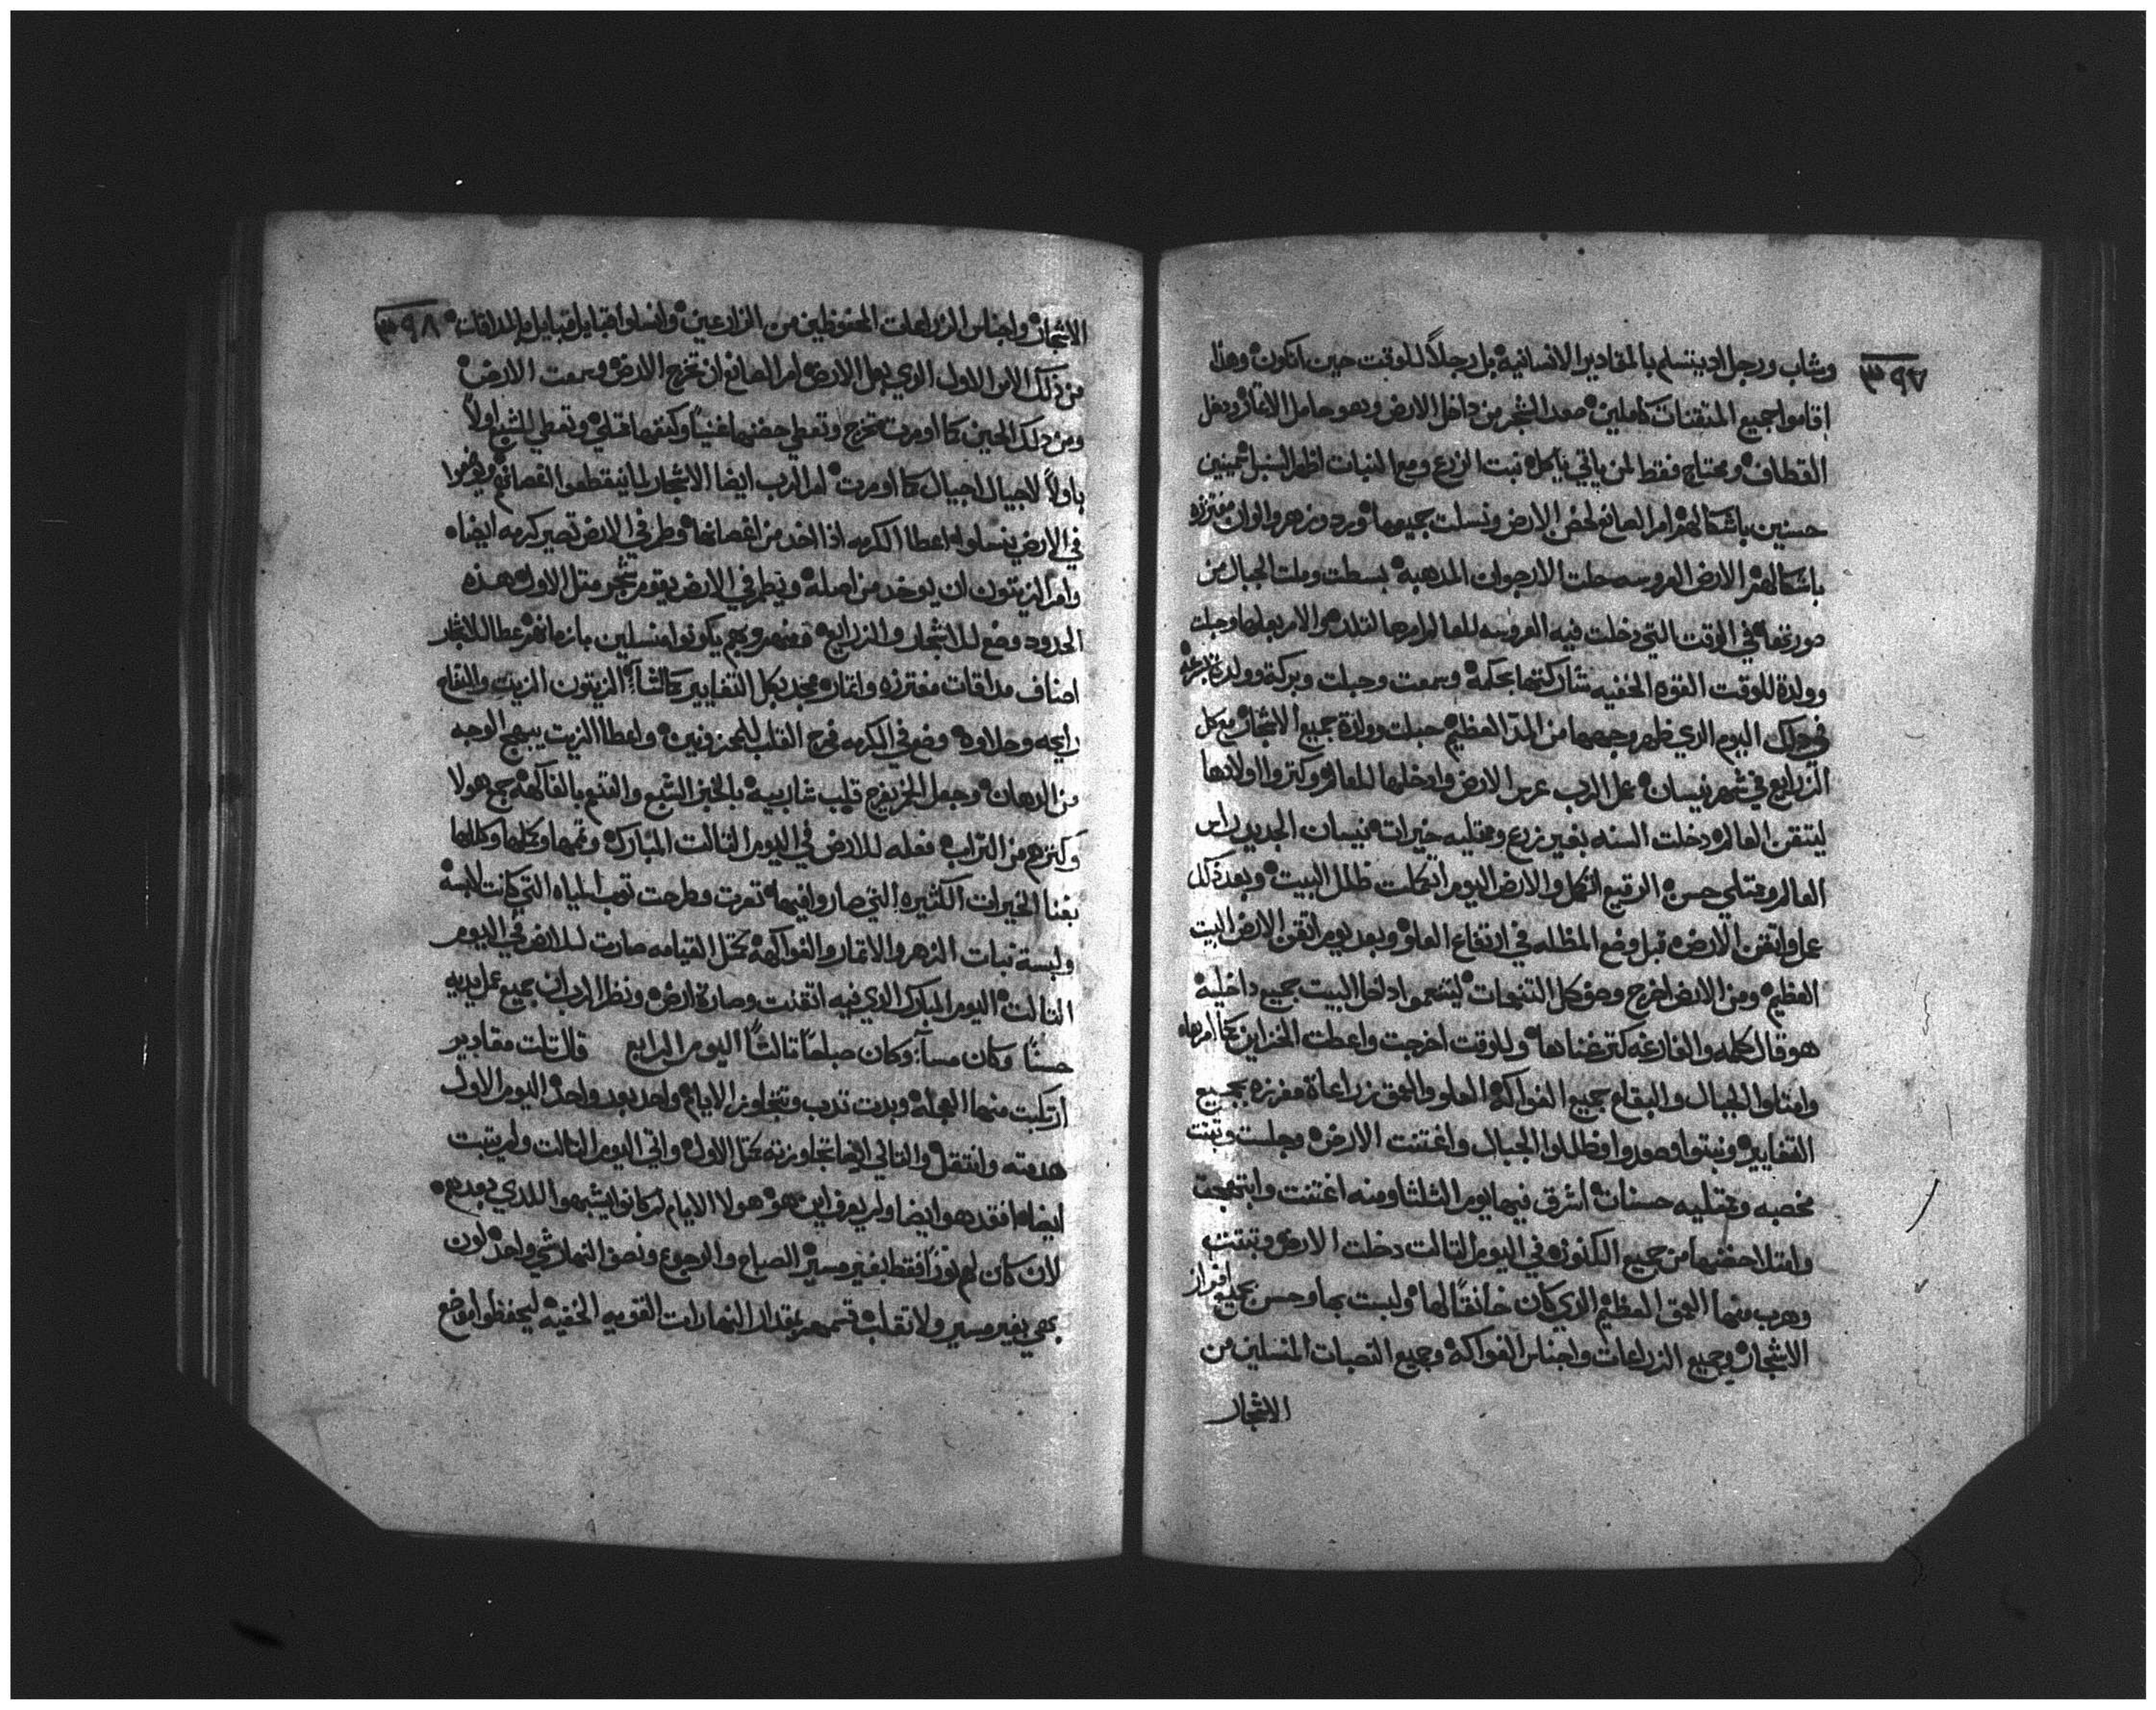 ٣٩٧
وشاب ورجل اد يتسلم بالمقادير الانسانية بل رجلاً للوقت حين اتكون وهذا
اقاموا جميع المتقنات كاملين صعد الشجر من داخل الارض وهو حامل الاثمار ودخل
القطاف ومحتاج فقط لمن ياتي ياكل نبت الزرع ومع النبات اظهر السنبل ثمينين
حسنين باشكالهم امر الصانع لحضن الارض ونسلت جميعها ورد وزهر والوان مفترزه
باشكالهم الارض العروسه حلت الارجوان المدهبة بسطت وملت الجبال من
صورتها في الوقت التي دخلت فيه العروسه للعالم امرها لتلد والامر بعلها وحبلت
وولدة للوقت القوه الخفيه شاركتها بحكمة وسمعت وحبلت وبركة وولدة
في دلك اليوم الذي ظهر وجهها من المد العظيم حبلت وولدة جميع الاشجار مع كل
الزرايع في شهر نيسان عمل الرب عرس الارض وادخلها للعالم وكتروا اولادها
ليتقن العالم دخلت السنه بغير زرع وممتليه خيرات نيسان الجديد راس
العالم وممتلي حسن الرقيع اتكمل والارض اليوم اتكملت ظلل البيت وبعد ذلك
عمل واتقن الارض قبل وضع المظله في ارتفاع العلو وبعد يوم اتقن الارض البيت
العظيم ومن الارض اخرج وصف كل التنيحات ليتنعم ادخل البيت بجميع داخليه
هو قال كلمه والفارغه كتر غناها وللوقت اخرجت واعطت الخزاين كما امرها
وامتلوا الجبال والبقاع جميع الفواكه العلو والعمق زراعاة مفرزه بجميع
التغايير ونبتوا وصعدوا وظللوا الجبال واغتنت الارض وجلست وتبنت
مخصبه وممتليه حسنات اشرق فيها يوم الثلثا ومنه اغتنت وابتهجت
وامتلا حضنها من جميع الكنوز في اليوم التالت دخلت الارض وتبنت
وهرب منها العمق العظيم الذي كان خانقاً لها ولبست بها وحسن بجميع افراز
الاشجار وجميع الزراعات واجناس الفواكه وجميع النصبات المنسلين من
الاشجار
٣٩٨
الاشجار واجناس الزراعات المحفوظين من الزارعين وانسلوا قبايل قبايل والمداقات
من ذلك الامر الاول الذي بعل الارض امر الصانع ان تخرج الارض وسمعت الارض
ومن دلك الحين كما اومرت تخرج وتعطي حضنها غنياً وكنزها ممتلي وتعطي للشبع اولاً
باولاً لاجيال اجيال كما اومرت امر الرب ايضا الاشجار لما ينقطعوا اغصانهم ويغرسوا
في الارض ينسلوا اعطا الكرمه اذا اخد من اغصانها وطمر في الارض تصير كرمه ايضا
وامر الزيتون ان يوخد من اصله ويطمر في الارض يقوم شجر متل الاول هذه
الحدود وضع للاشجار والزرايع منهم وبهم يكونوا منسلين بازمانهم عطا للاثمار
اصناف مداقات مفترزه واثمار مجد بكل التغايير كالشأ الزيتون الزيت والتفاح
رايحه وحلاوه وضع في الكرمه فرح القلب للمحزونين واعطا الزيت يبهج الوجه
من الدهان وجعل الخمر يفرح قلب شاربيه بالخبز الشبع والنعم بالفاكهة جمع هولا
وكنزهم من التراب فعله للارض في اليوم التالت المبارك وتمها وكملها وكللها
بغنا الخيرات الكتيره التي صاروا فيها تعرت وطرحت توب المياه التي كانت لابسه
ولبسة نبات الزهر والاثمار والفواكه بمتل القيامه صارت للارض في اليوم
التالت اليوم المبارك الذي فيه اتقنت وصارة ارض ونظر الرب ان جميع عمل يديه
حسناً وكان مسآ وكان صباحاً ثالثاً اليوم الرابع قال تلت مقادير
ارتكبت منها العجلة وبدت تدب وتتجاوز الايام واحد بعد واحد اليوم الاول
هدمته وانتقل والتاني ايضا تجاوزته بمتل الاول واتي اليوم التالت ولم يتبت
ايضا افقدهو ايضا ولم يعرف اين هو هولا الايام لم كانوا يشبهوا للذي بعدهم
لان كان لهم نوراً فقط بغير مسير الصباح والرجوع ونصف النهار شي واحد لون
بهي بغير مسير ولا تقلب قسمهم بمقدار النهارات القويه الخفيه ليحفظوا موضع